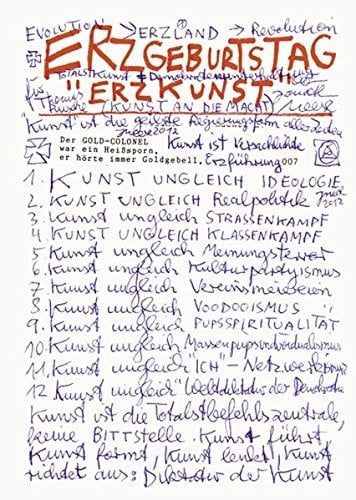 EVOLUTION → ERZLAND → Revolution
ERZGEBURTSTAG
TOTALSTKUNST ≠
"ERZKUNST"
für Jonathan Meese
(KUNST AN DIE MACHT)
"Kunst" ist die geilste Regierungsform aller Zeiten
Meese 2012
Der GOLD-COLONEL
war ein Heißsporn,
er hörte immer Goldgebell.
Kunst ist Verschlußte
Erzführung 007
1. KUNST UNGLEICH IDEOLOGIE
2. KUNST UNGLEICH Realpolitik
Meese 2012
3. Kunst ungleich STRASSENKAMPF
4. KUNST UNGLEICH KLASSENKAMPF
5 Kunst ungleich Meinungsterror
6. Kunst ungleich Kulturpartyismus
7 Kunst ungleich Vereinsmeiereien
8. Kunst ungleich VOODOOISMUS
9. Kunst ungleich PUPSSPIRITUALITÄT
10. Kunst ungleich Massenpupsindividualismus
11. Kunst ungleich "ICH"-Netzwerkerei
12 Kunst ungleich Weltdiktatur der Demokratie
Kunst ist die Totalstbefehlszentrale,
keine BITTSTELLE. Kunst führt,
Kunst formt, Kunst lenkt, Kunst
richtet aus: Diktatur der Kunst